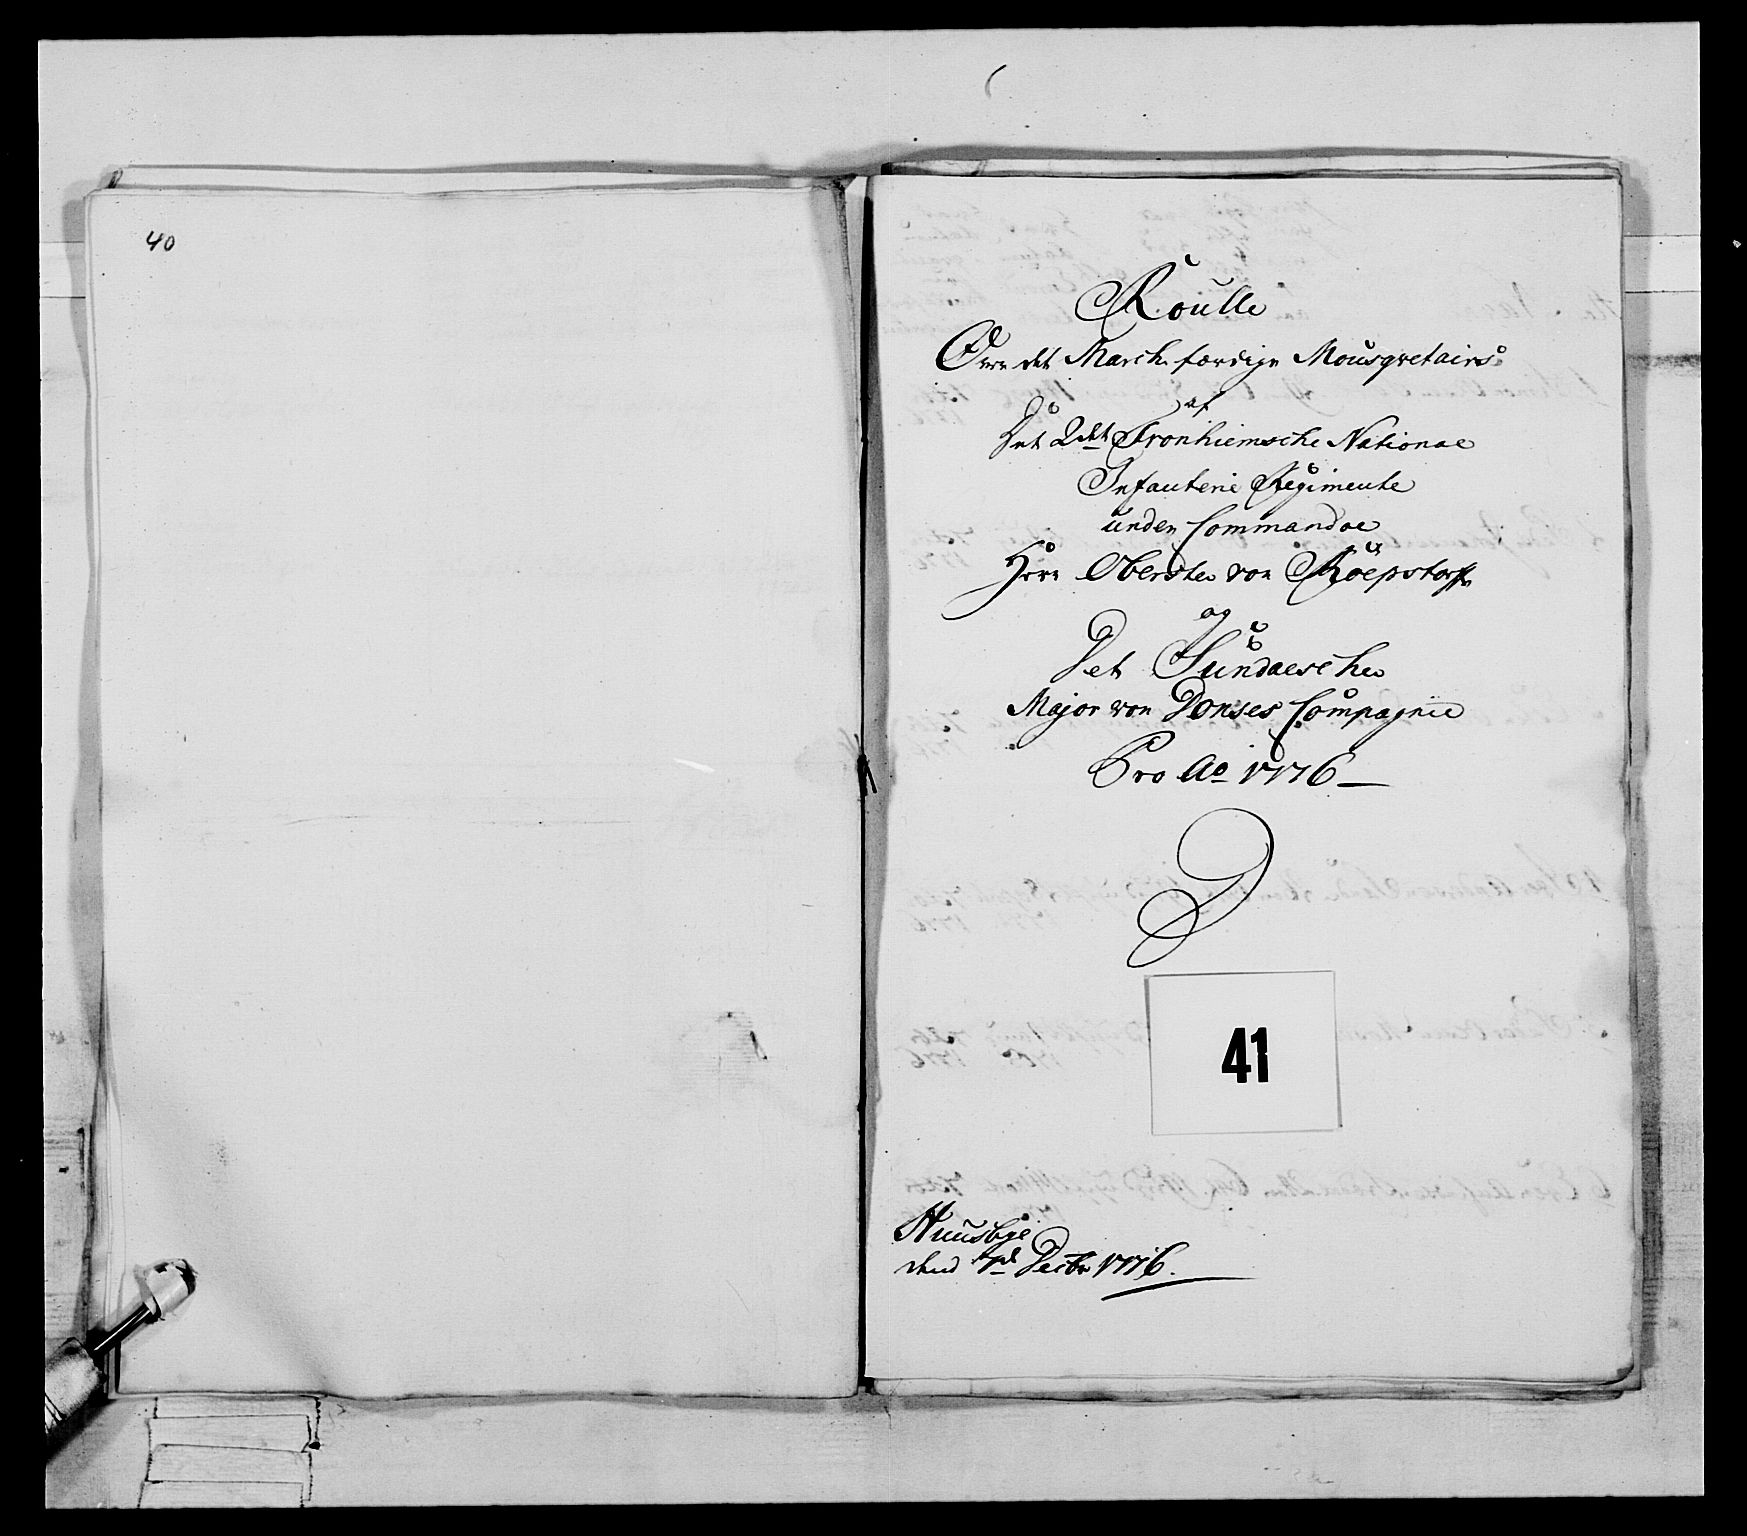 40
Roulle
Over det March færdige Mousqvetairs
af
Det 2det Tronhiemsche National
Infanterie Regimente
under Commandoe
Herr Oberste von Röepstorff
og
Det Sundalsche
Major von Donses Compagnie
Pro Ao 1776
41
Huusbye
dend 7de Decbr 1776.